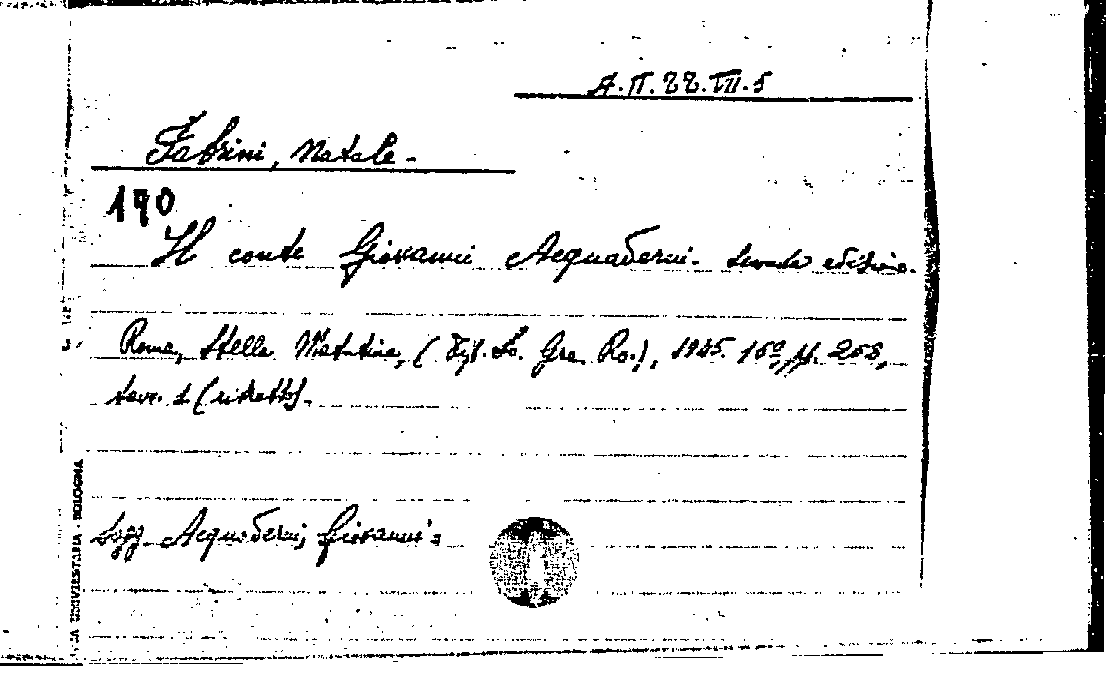 A.П.22.VII.5
Fabrini, Natale.
190
Il conte Giovanni Acquaderni. Seconda edizione.
Roma, Stella Mattutina, (Tip. So. Gra. Ro.), 1945. 16º, pp. 268,
tavv. 1 (ritratto).
Sogg. Acquaderni, Giovanni
UNIVERSITARIA - BOLOGNA